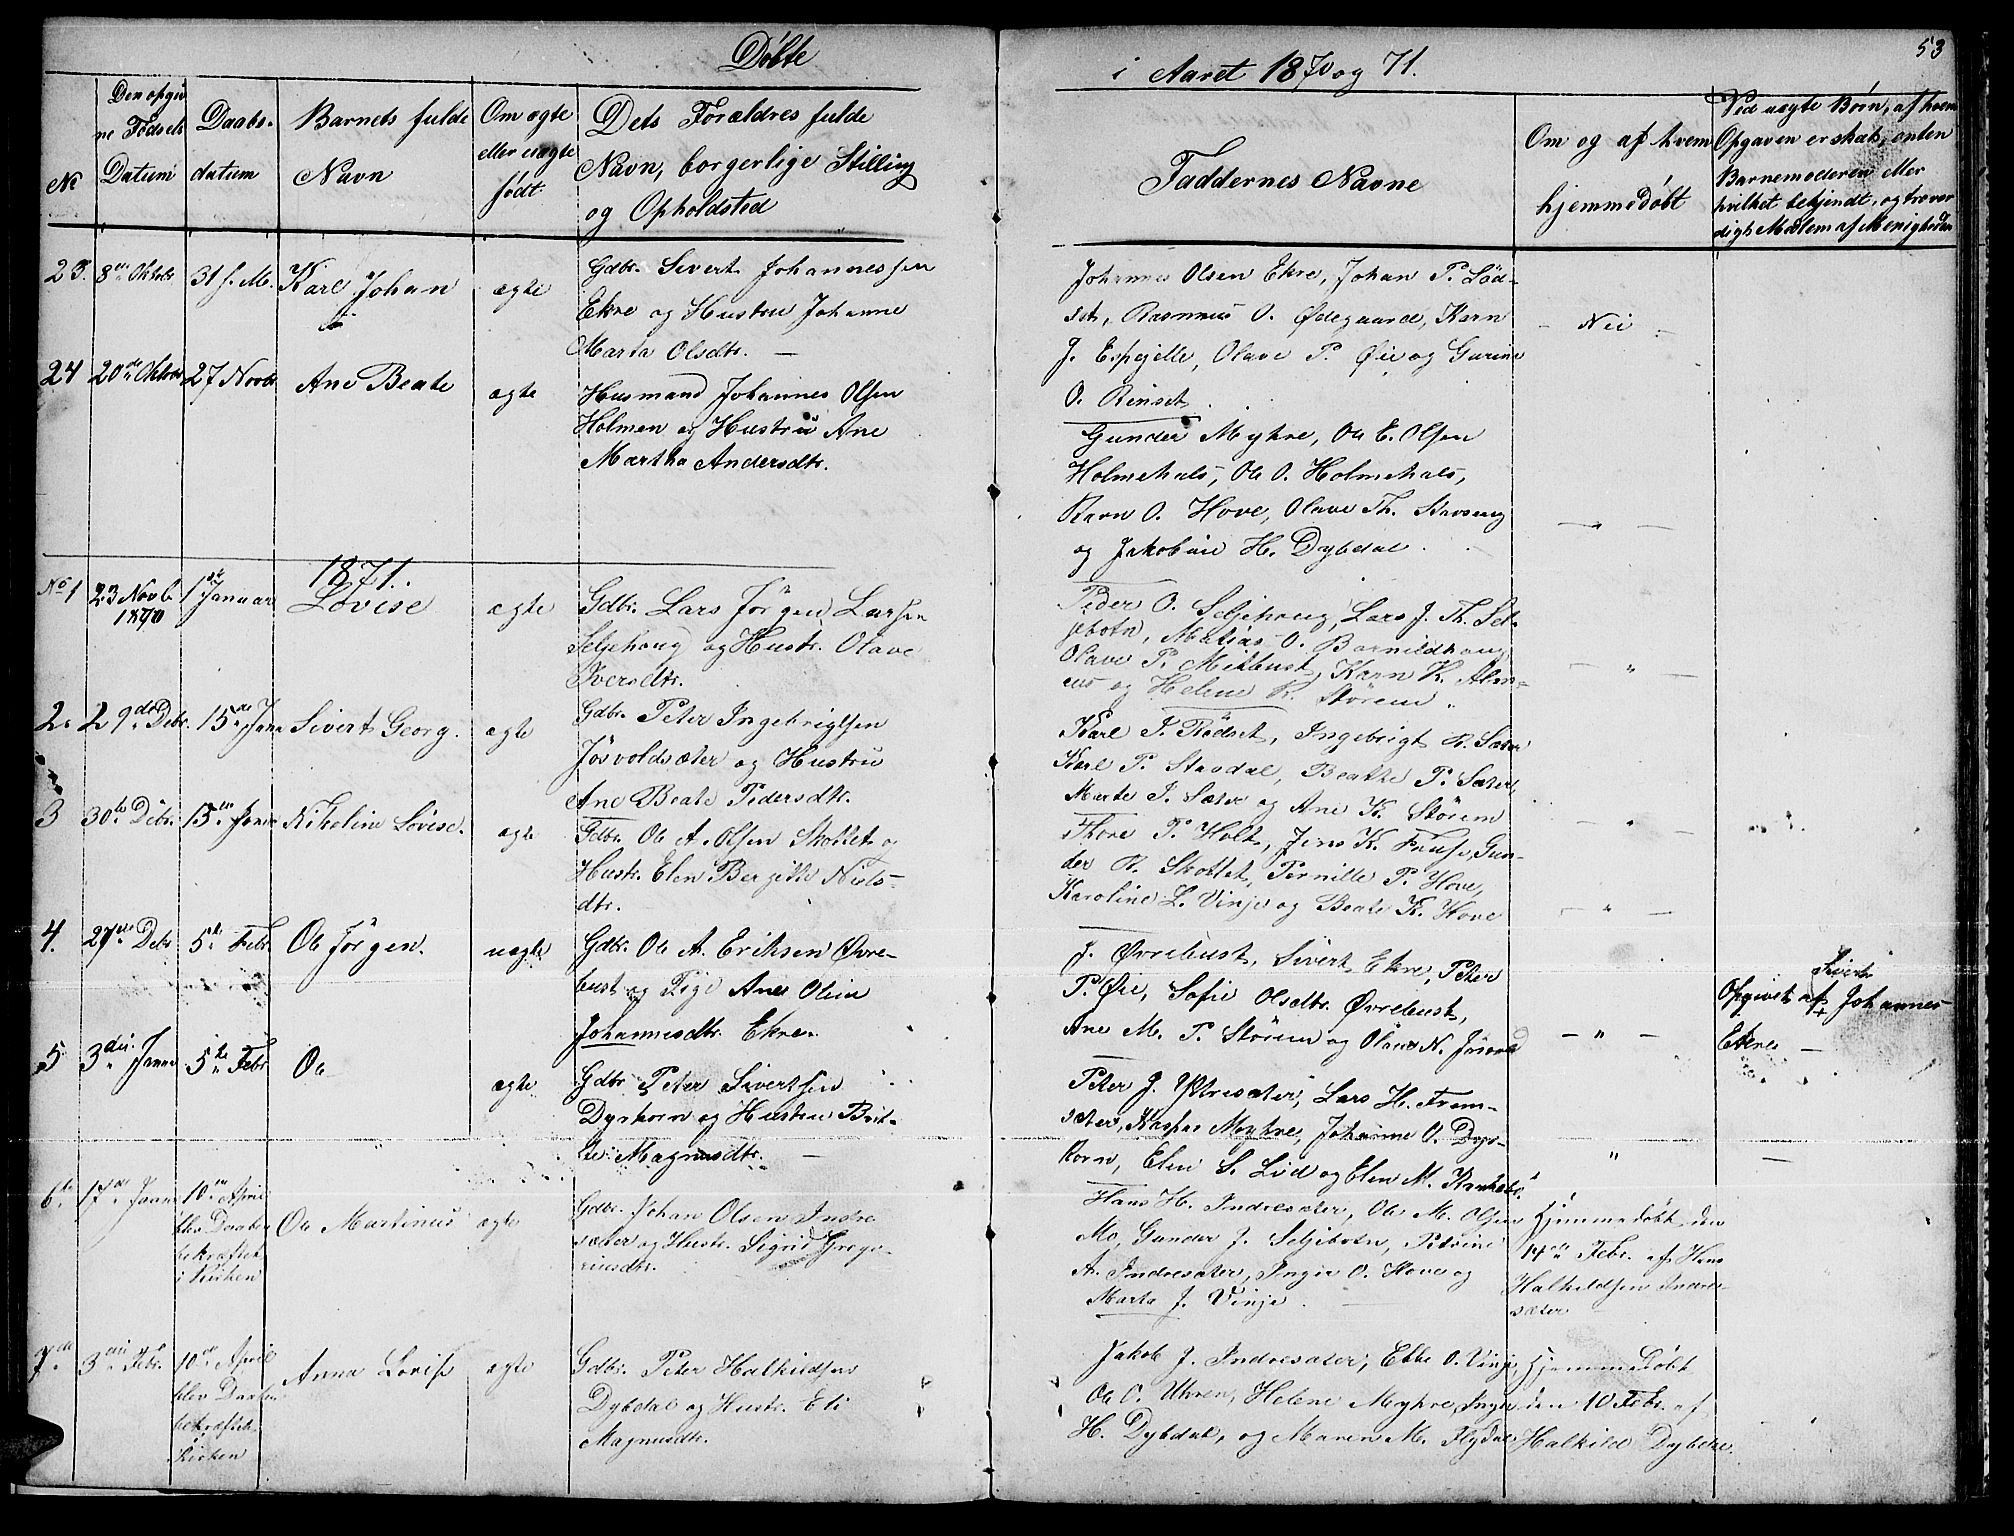 Döbte
i Aaret 1870 og 71.
53
No
Den opgiv
ne Fødsels
Datum
Daabs-
datum
Barnets fulde
Navn
Om ægte
eller uægte
født
Dets Forældres fulde
Navn, borgerlige Stilling
og Opholdsted
Faddernes Navne
Om og af hvem
hjemmedøbt
Ved uægte Børn, af hvem
Opgaven er skab, enten
Barnemoderen eller
hvilket bekjendt, og trover
digt Medlem af Menigheden
23.
8de Oktobr
31 s. M.
Karl Johan
ægte
Gdbr. Sivert Johannessen
Ekre og Hustru Johanne
Marta Olsdtr. —
Johannes Olsen Ekre, Johan P. Lød-
set, Rasmus O. Ødegaard, Karn
J. Espejelle, Olave P. Øie og Gurine
O. Rinset.
- Nei -
24
20de Oktobr
27 Novbr
Ane Beate
ægte
Husmand Johannes Olsen
Holmen og Hustru Ane
Martha Andersdtr.
Gunder Myhre, Ole E. Olsen
Holmehals, Ole O. Holmehals,
Karn O. Hove, Olave Th.
og Jakobine H. Dybdal.
— " —
1871.
No 1
23 Novb.
1870
1ste Januar
Lovise
ægte
Gdbr. Lars Jörgen Larsen
Seljehoug og Hustr. Olave
Iversdtr.
Peder O. Seljehoug, Lars J. Th. Sel-
jebotn, Matias O.
Olave P. Mikbust, Karn K.
og Helene K. Störem.
— " —
2.
29de Debr.
15de Janu
Sivert Georg.
ægte
Gdbr. Peter Ingebrigtsen
Jösvoldsæter og Hustru
Ane Beate Pedersdtr.
Karl P. Rödset, Ingebrigt R. Sæter
Karl P. Stavdal, Beatte P. Sæter,
Marte P. Sæter og Ane K. Störem
— " —
3
30te Debr.
15de Janua
Nikoline Lovise.
ægte
Gdbr. Ole A. Olsen Skottet og
Hustr. Elen Berjitte Niels-
dtr.
Thore P. Holt, Jens K. Furse, Gun-
der R. Skottet, Pernille P. Hove,
Karoline L. Vinje og Beate K. Hove
— " —
4.
27de Debr
5te Febr.
Ole Jörgen.
uægte
Gdbr. Ole A. Eriksen Øvre-
bust og Pige Ane Oline
Johannesdtr. Ekre.
J. Øvrebust, Sivert Ekre, Peter
P. Øie, Sofie Olsdtr. Øvrebust,
Ane M. P. Störem og Olaus N. Jösvold
— " —
Sivert
Opgivet af + Johannes
Ekre —
5
3die Janua
5te Febr
Ole
ægte
Gdbr Peter Sivertsen
Dyrkorn og Hustru Brit-
te Magnusdtr. —
Peter J. Yttresæter, Lars H. Frem-
sæter, Kaspar Myhre, Johanne O. Dyr-
korn, Elen S. Lid og Elen M.
" —
6te
17de Janua
10de April
blev Daaben
bekræftet
i Kirken
Ole Martinus
ægte
Gdbr. Johan Olsen Indre
sæter og Hustr. Sigrid Grego-
riusdtr.
Hans H. Indresæter, Ole M. Olsen
Mo, Gunder J. Seljebotn, Petrine
A. Indresæter, Ingir O. Hove og
Marta J. Vinje.
Hjemmedøbt den
14de Febr. af Hans
Halkildsen Indre-
sæter
7de
3die Febr.
10de April
blev Daaben
bekræftet
i Kirken
Anna Lovise
ægte
Gdbr. Peter Halkildsen
Dybdal og Hustr. Eli
Magnusdtr.
Jakob J. Indresæter, Ebbe O. Vinje,
Ole O. Uhren, Helene Myhre, Inger
H. Dybdal, og Maren M. Flydal
Hjemmedøbt
den 10 Febr. af
Halkild Dybdal.